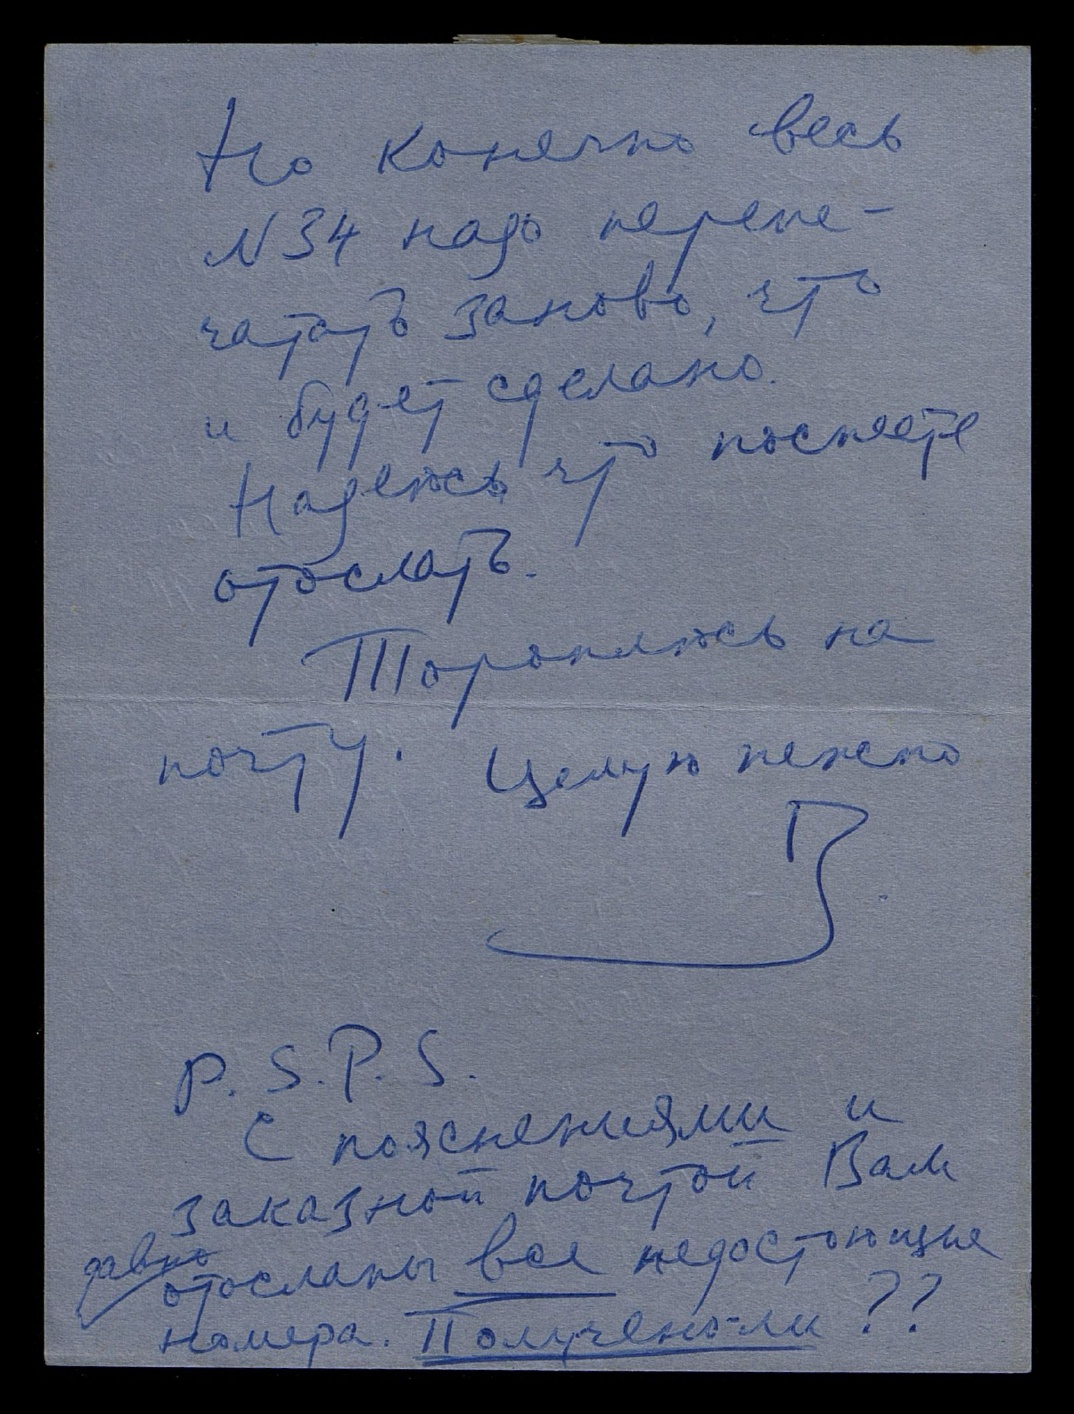 Но конечно весь
N34 надо перепе-
чатать заново, что
и будет сделано.
Надеюсь что поспеете
отослать.
Тороплюсь на
почту. Целую нежно
В.
P.S.P.S.
С пояснениями и
заказной почтой Вам
давно
отосланы все недостающие
номера. Получено-ли ??